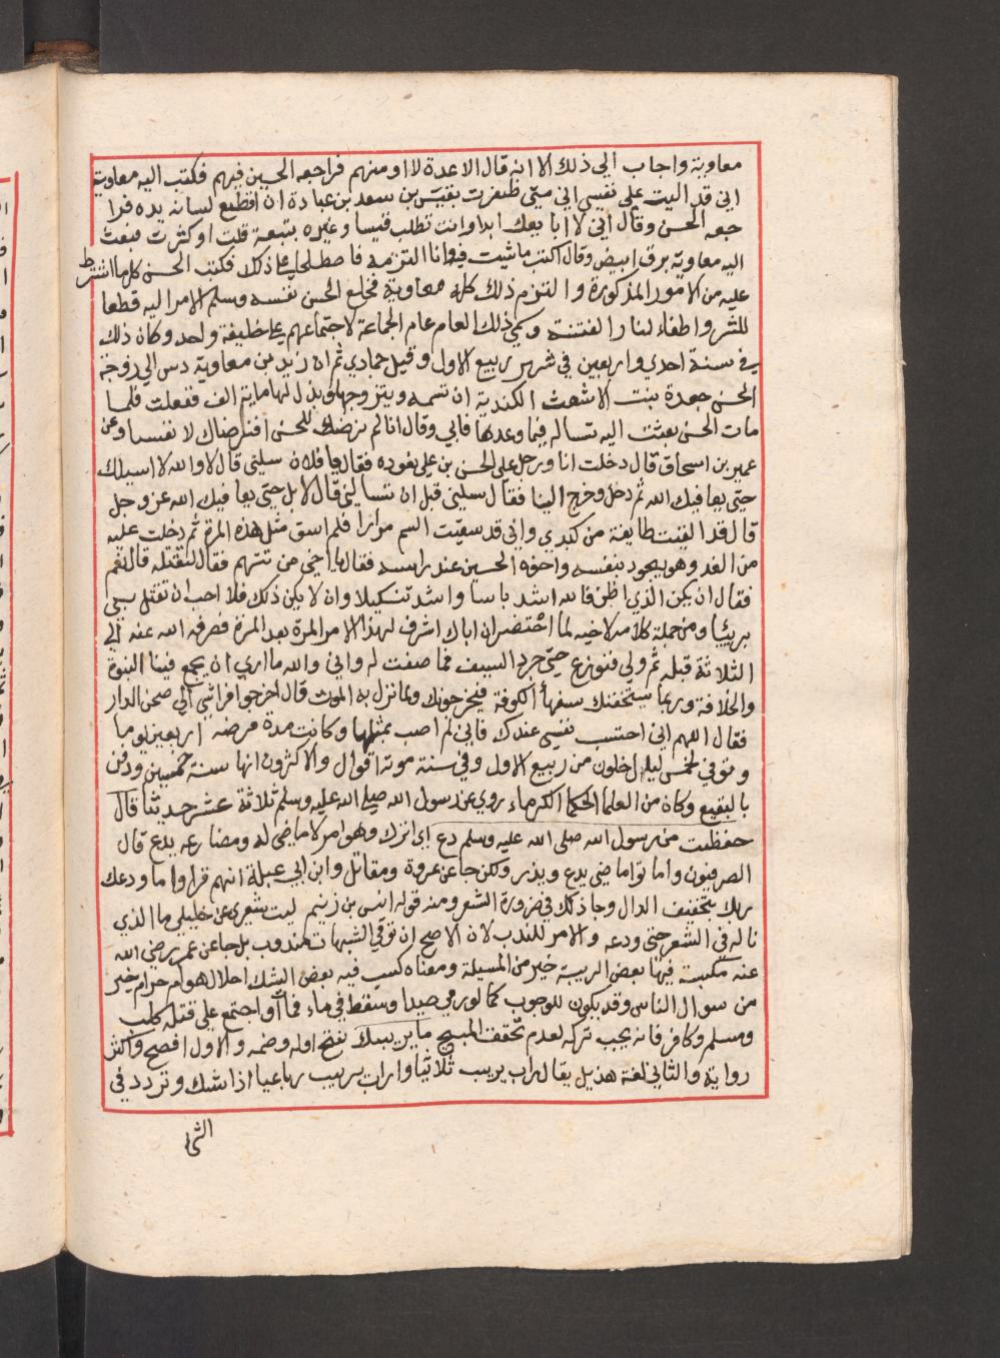 معاوية واجاب الي ذلك الا انه قال الا عدة لا اومنهم فراجعه الحسين فيهم فكتب اليه معاوية
اني قد اليت على نفسي اني متي ظفرت بقيس بن سعد بن عبادة ان اقطع لسانه يده فرا
جعه الحسن وقال اني لا ابايعك ابدا وانت تطلب قيسا وغيره بتبعة قلت او كثرت فبعث
اليه معاوية برق ابيض وقال اكتب ما شيت فيه وانا التزمه فاصطلحا على ذلك فكتب الحسن كلما اشترط
عليه من الامور المذكورة والتزم ذلك كله معاوية فخلع الحسن نفسه وسلم الامر اليه قطعا
للشر واطفاء لنار الفتنة وسمي ذلك العام عام الجماعة لاجتماعهم على خليفة واحد وكان ذلك
في سنة احدي واربعين في شهر ربيع الاول وقيل جمادي ثم ان زيد بن معاوية دس الي زوجة
الحسن جعدة بنت الاشعث الكندية ان تسمه ويتزوجها وبذل لها ماية الف ففعلت فلما
مات الحسن بعثت اليه تساله فيما وعدها فابي وقال انا لم نرضك للحسن افنرضاك لانفسنا وعن
عمير بن اسحاق قال دخلت انا ورجل على الحسن بن علي نعوده فقال يا فلان سلني قال لا والله لا اسيلك
حتي يعافيك الله ثم دخل وخرج الينا فقال سلني قبل ان تسالني قال لا بل حتي يعافيك الله عز وجل
قال قد القيت طايفة من كبدي واني قد سقيت السم مرارا فلم اسق مثل هذه المرة ثم دخلت عليه
من الغد وهو يجود بنفسه واخوه الحسين عند راسه فقال يا اخي من تتهم فقال لتقتله قال نعم
فقال ان يكن الذي اظن فالله اشد باسا واشد تنكيلا وان لا يكن ذلك فلا احب ان تقتل بي
بريئا ومن جملة كلامه لاخيه لما احتضر ان اباك اشرف لهذا الامر المرة بعد المرة فصرفه الله عنه الي
الثلاثة قبله ثم ولي فنوزع حتي جرد السيف فما صفت له واني والله ما اري ان يجمع فينا النبوة
والخلافة وربما ستخفنك سفهاء الكوفة فيخرجونك ولما نزل به الموت قال اخرجوا فراشي الي صحن الدار
فقال اللهم اني احتسب نفسي عندك فاني لم اصب بمثلها وكانت مدة مرضه اربعين يوما
وتوفي لخمس ليال خلون من ربيع الاول وفي سنة موته اقوال والاكثرون انها سنة خمسين ودفن
بالبقيع وكان من العلما الحكما الكرماء روي عن رسول الله صلى الله عليه وسلم ثلاثة عشر حديثا قال
حفظت من رسول الله صلى الله عليه وسلم دع اي اترك وهو امر لا ماضي له ومضارعه يدع قال
الصرفيون واماتوا ماضي يدع ويذر ولكن جا عن عروة ومقاتل وابن ابي عبلة انهم قراوا ما ودعك
ربك بتخفيف الدال وجا ذلك في ضرورة الشعر ومنه قوله انس بن زنيم ليت شعري عن خليلي ما الذي
ناله في الشعر حتي ودعه والامر للندب لان الاصح ان توقي الشبهات مندوب بل جا عن عمر رضي الله
عنه مكسبة فيها بعض الريبة خير من المسيلة ومعناه كسب فيه بعض الشك احلال هو ام حرام خير
من سوال الناس وقد يكون للوجوب كما لو رمي صيدا وسقط في ماء فمات او اجتمع على قتله كلب
ومسلم وكافر فانه يجب تركه لعدم تحقق المبيح ما يريبك بفتح اوله وضمه والاول افصح واكثر
رواية والثاني لغة هذيل يقال راب يريب ثلاثيا واراب يريب رباعيا اذا شك وتردد في